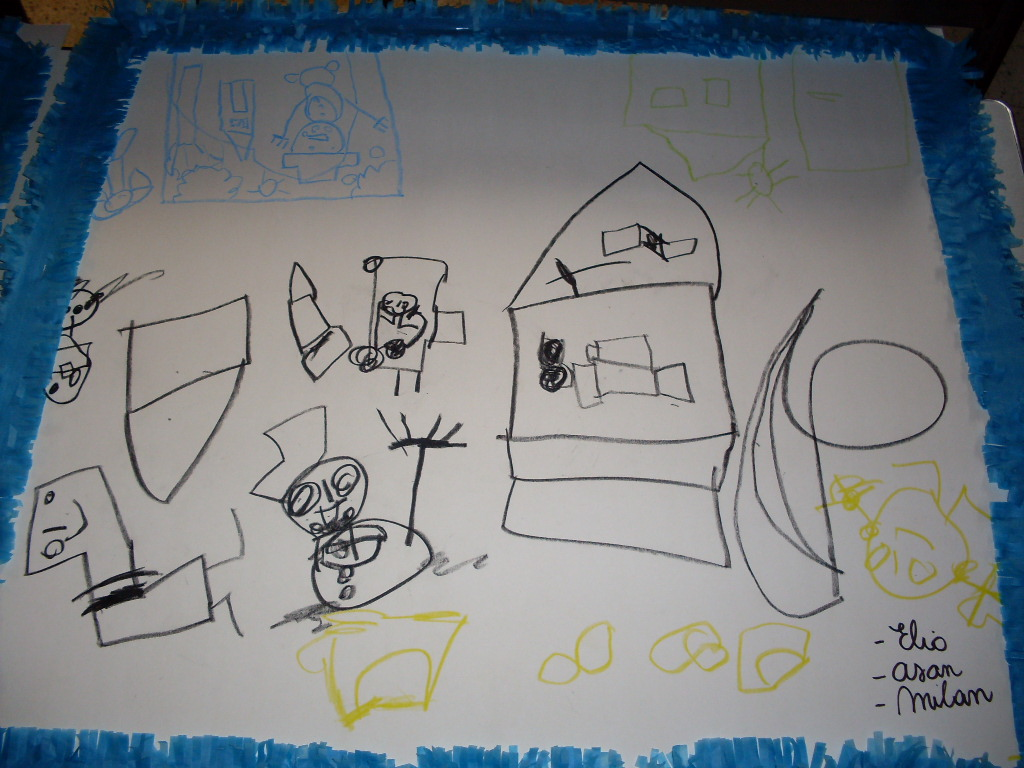 - Elio
- asan
- Milan